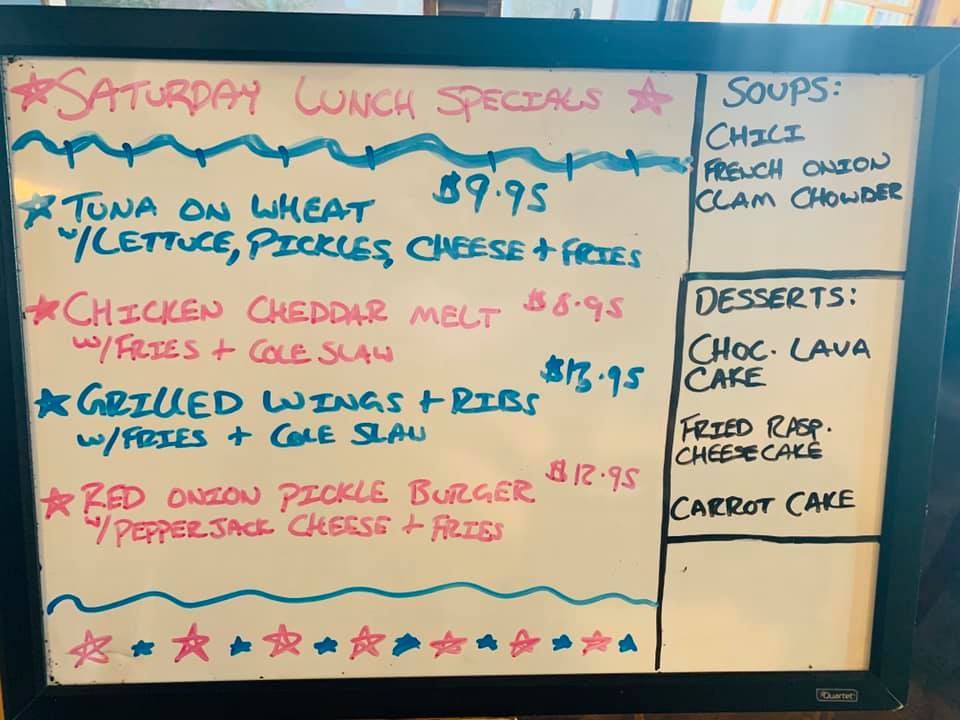 SATURDAY LUNCH SPECIALS
TUNA ON WHEAT $9.95
w/LETTUCE, PICKLES, CHEESE + FRIES
CHICKEN CHEDDAR MELT $8.95
w/FRIES + COLE SLAW
GRILLED WINGS + RIBS $13.95
w/FRIES + COLE SLAW
RED ONION PICKLE BURGER $12.95
w/PEPPERJACK CHEESE + FRIES
SOUPS:
CHILI
FRENCH ONION
CLAM CHOWDER
DESSERTS:
CHOC. LAVA
CAKE
FRIED RASP.
CHEESECAKE
CARROT CAKE
Quartet